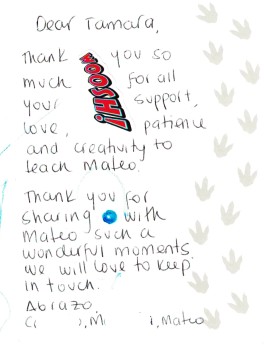 Dear Tamara,
Thank you so
much for all
WOOSH!
your support,
love, patience
and creativity to
teach Mateo.
Thank you for
sharing with
Mateo such a
wonderful moments.
we will love to keep
in touch.
Abrazo,
Mateo